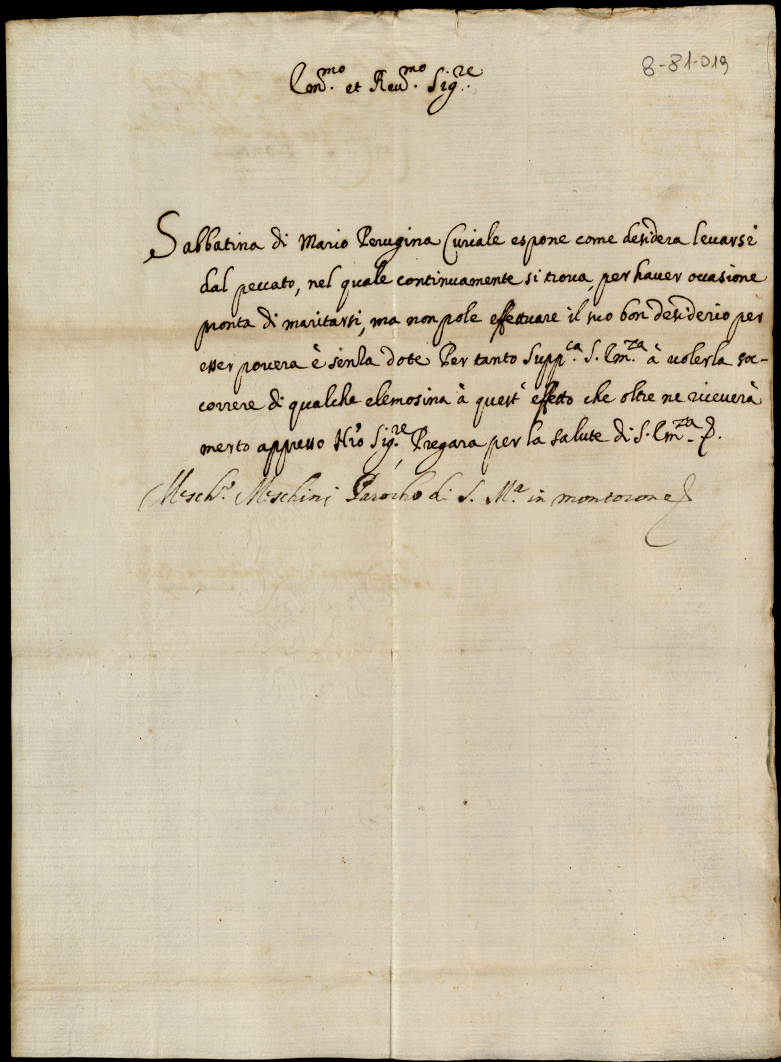 8-81-019
Em.mo et Reu.mo Sig.re
Sabbatina di Mario Perugina Curiale espone come desidera leuarsi
dal peccato, nel quale continuamente si troua, per hauer occasione
pronta di maritarsi, ma non pole effettuare il suo bon desiderio per
esser pouera è senza dote Per tanto Supp.ca S. Em.za à uolerla soc-
correre di qualche elemosina à quest' effetto che oltre ne riceuerà
merto appresso N'ro Sig.re Pregara per la salute di S. Em.za
Meschini Parocho di S. M.a in monterone